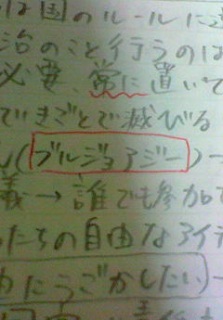 は国のルールに
治のこと行うのは
必要、常に置いて
できごとで滅びる
(ブルジョアジー)
義→誰でも参加
たちの自由なアイ
うごかしたい